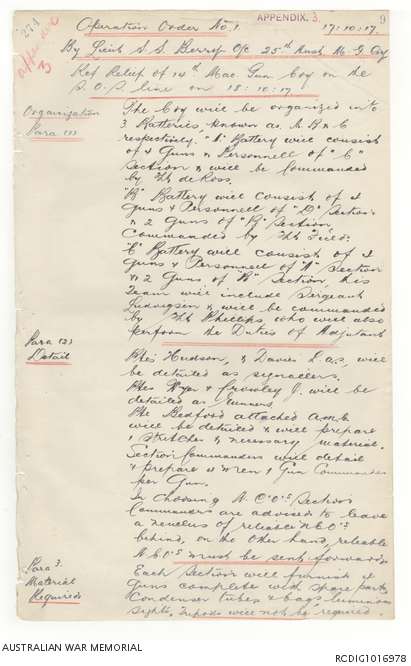 APPENDIX. 3.
9
274
Appendix
3
Operation Order No. 1. 17:10:17.
By Lieut S. S. Berry O/c 25th Aust M. G. Coy
Ref Relief of 14th Mac. Gun Coy on the
S.O.S. line on 18:10:17
Organization
Para (1)
The Coy will be organized into
3 Batteries, known as A. B & C
respectively. "A" Battery will consist
of 4 Guns & Personnell of "C"
Section & will be Commanded
by Lt de Ross.
"B" Battery will consist of 4
Guns & Personnell of "D" Section
& 2 Guns of "B" Section
Commanded by Lt Field.
"C" Battery will consist of 4
Guns & Personnell of "A" Section
& 2 Guns of "B" Section, his
Team will include Sergeant
& will be commanded
by Lt Phillips who will also
perform the Duties of Adjutant
Para (2)
Detail
Ptes Hudson, & Davies will
be detailed as signallers.
Ptes Dyer & Crowley J. will be
detailed as runners.
Pte Bedford attached A.M.C.
will be detailed & will prepare
1 Stretcher & necessary material.
Section Commanders will detail
& prepare 4 men 1 Gun Commander
per Gun.
In choosing N.C.O's Section
Commanders are advised to leave
a neucleus of reliable N.C.O's
behind, on the other hand, reliable
N.C.O's must be sent forward.
Para 3.
Material
Required
Each Section will furnish 4
Guns complete with spare parts
Condenser tubes & bags, luminous
sights, Tripods will not be required.
AUSTRALIAN WAR MEMORIAL
RCDIG1016978